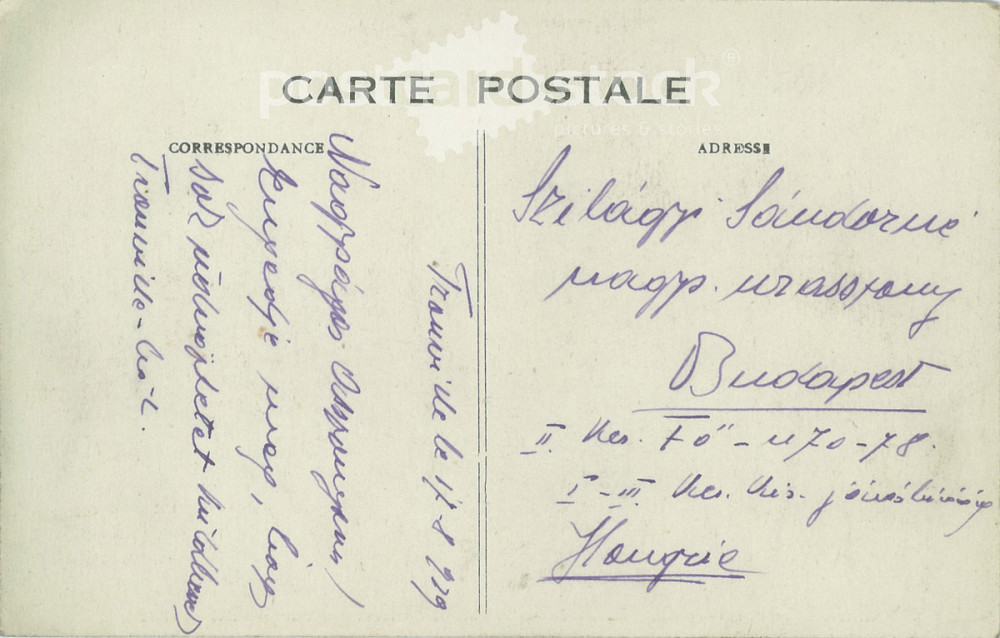 CARTE POSTALE
CORRESPONDANCE
ADRESSE
Trouville le 17 8 929
Nagyságos Asszonyom!
Engedje meg, hogy
sok üdvözletet küldhessek
Trouville-ból.
Szilágyi Sándorné
nagys. urasszony
Budapest
II. ker. Fő-u 70-78.
I-III. ker. kir. járásbíróság
Hongrie
postcardstock
pictures & stories